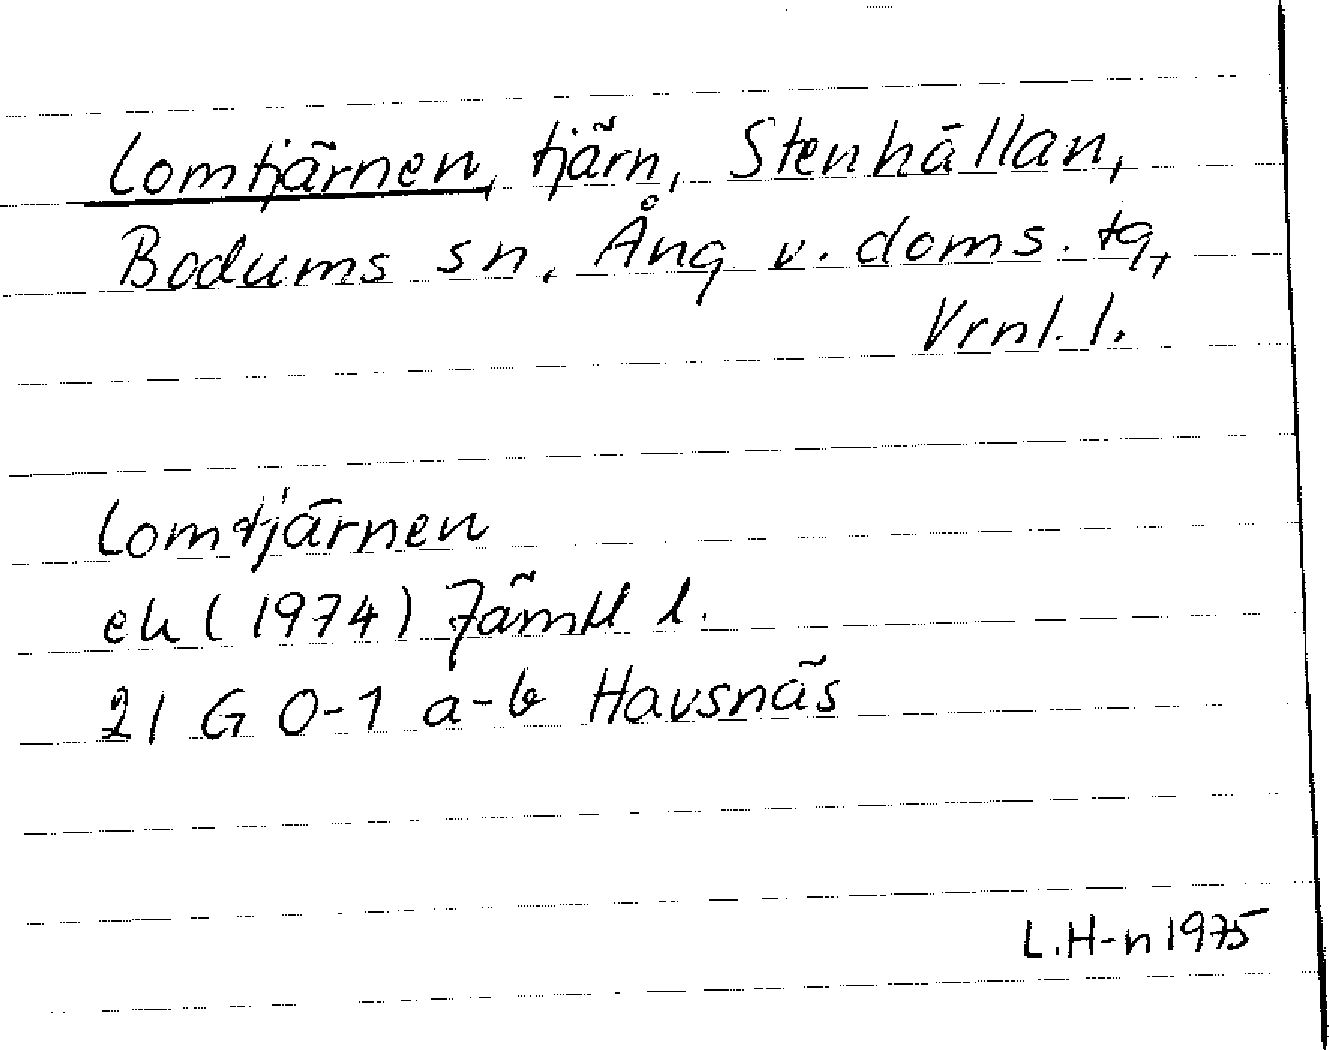 Lomtjärnen, tjärn, Stenhällan,
Bodums sn. Ång v. doms. tg,
Vrnl. l.
Lomtjärnen
ek (1974) Jämtl l.
21 G 0-1 a-b Havsnäs
L.H-n 1975